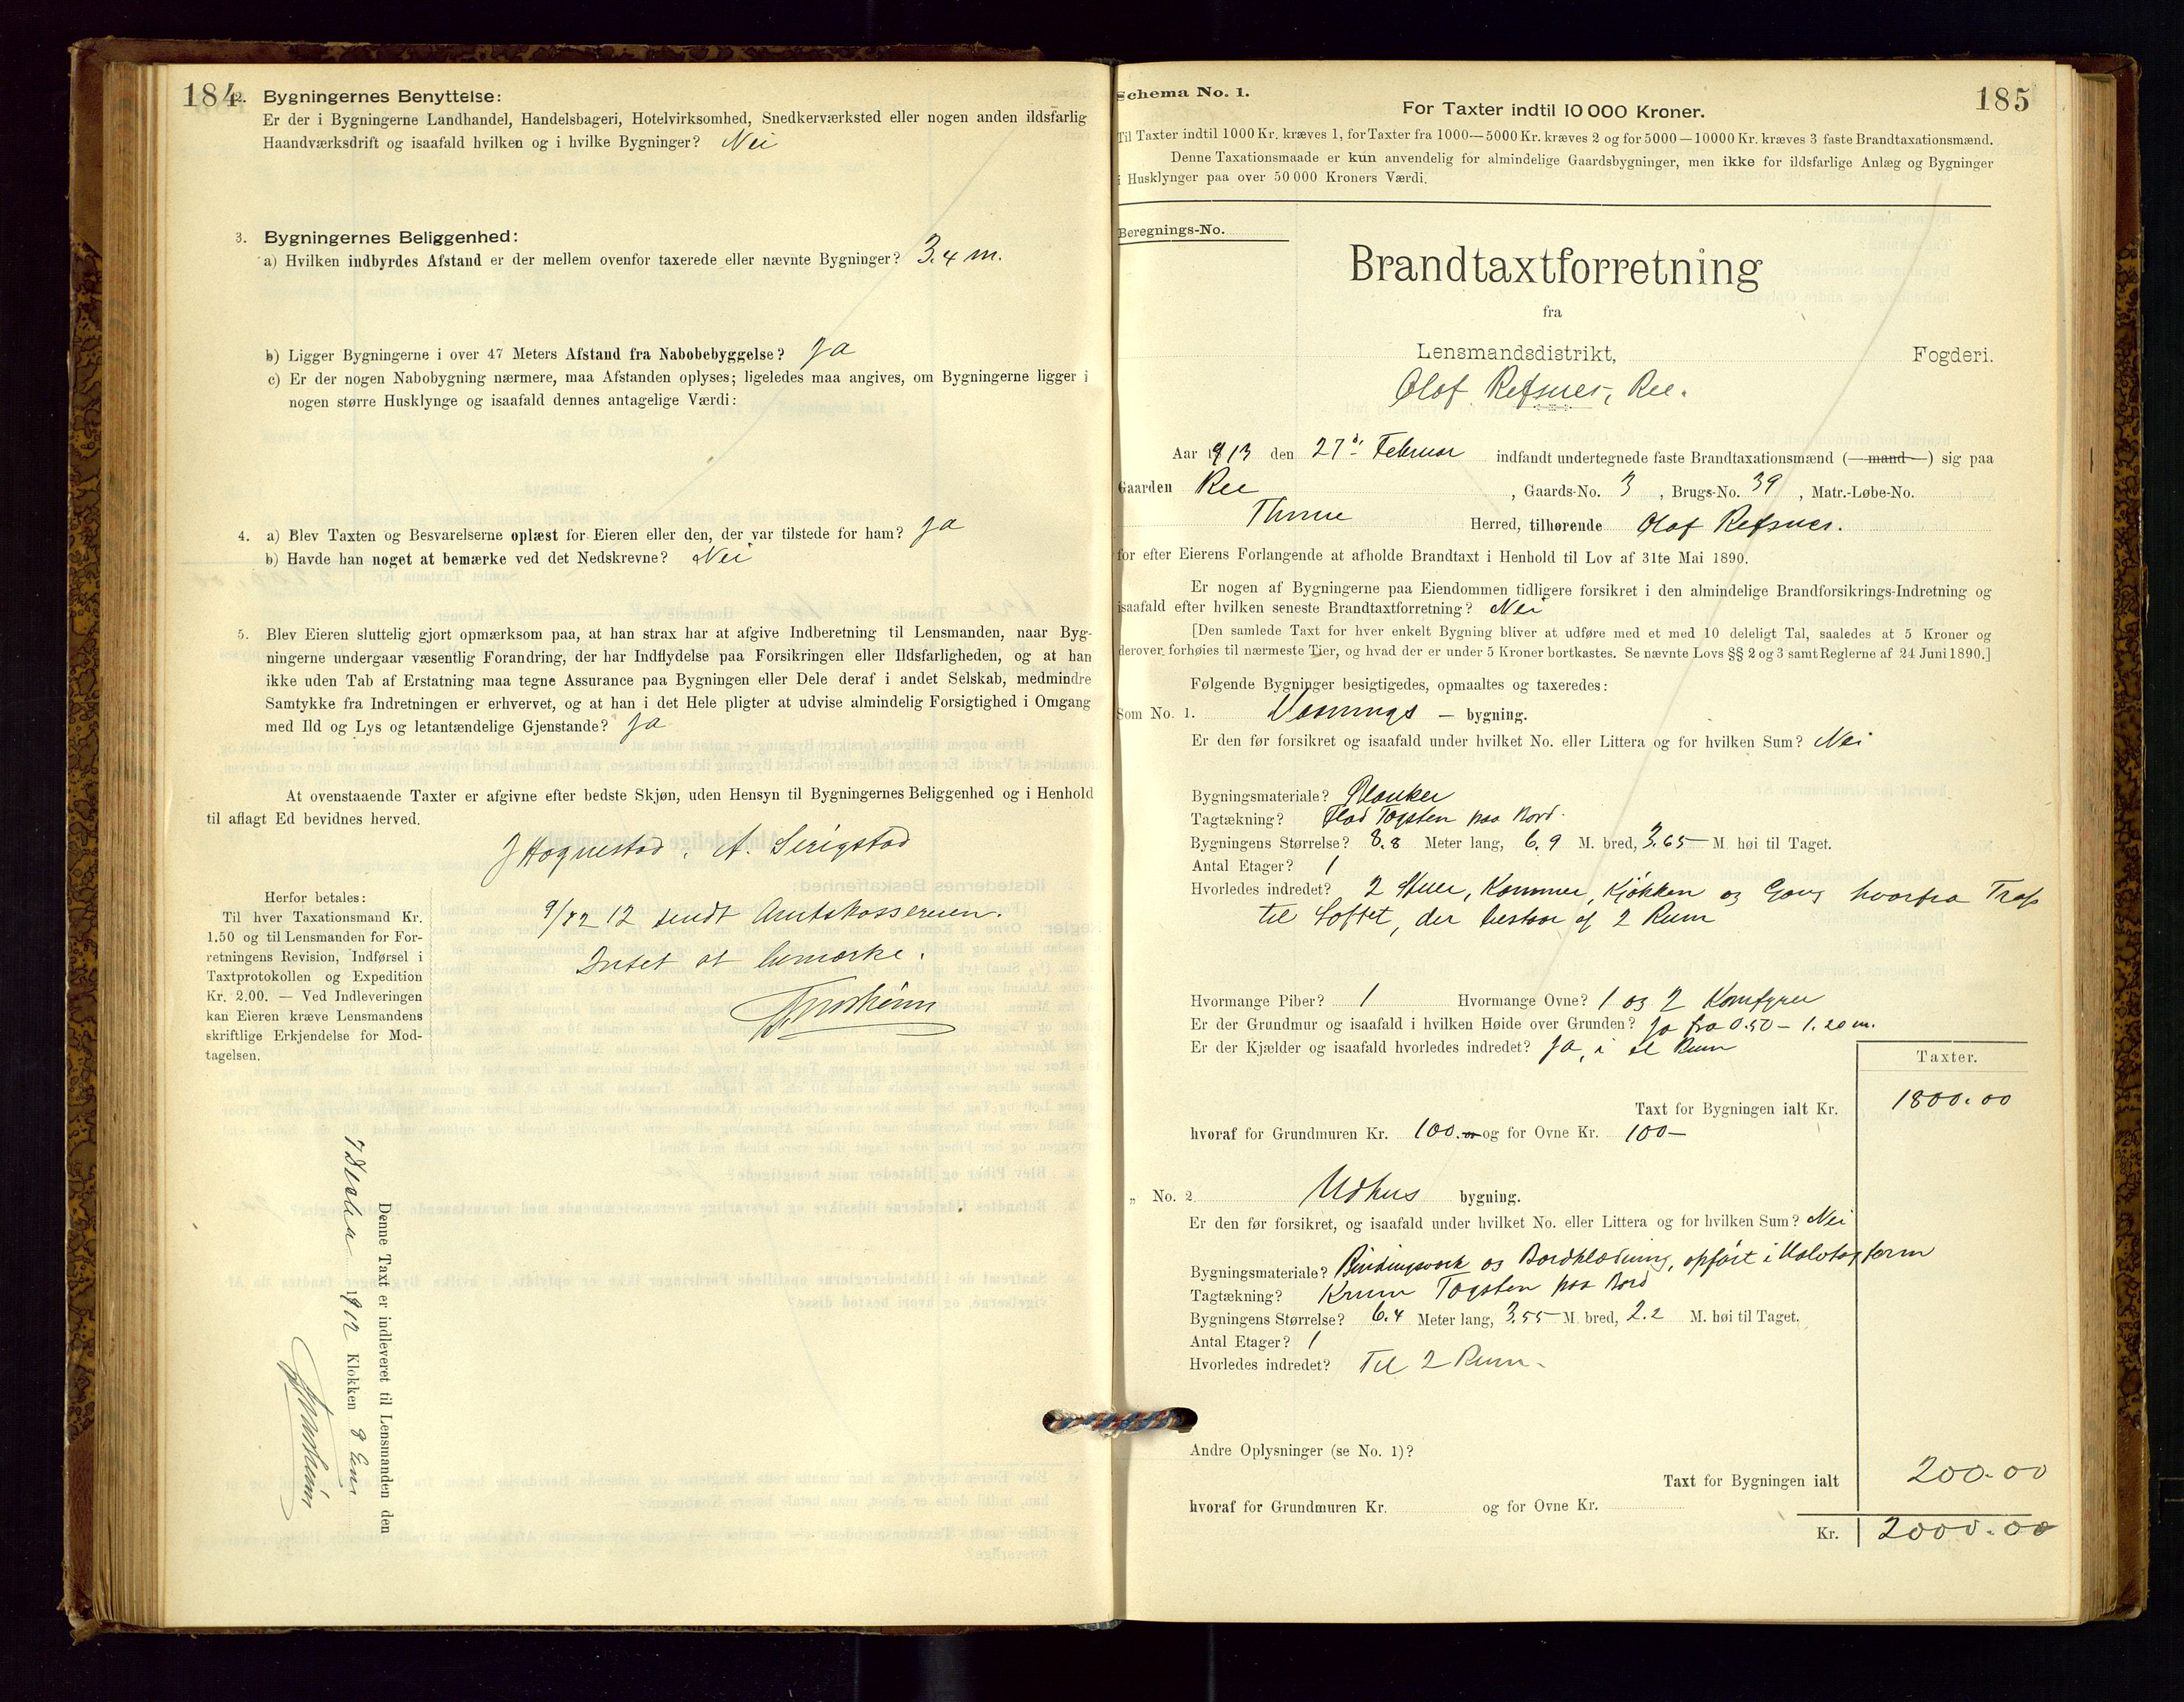 184
2. Bygningernes Benyttelse:
Er der i Bygningerne Landhandel, Handelsbageri, Hotelvirksomhed, Snedkerværksted eller nogen anden ildsfarlig
Haandværksdrift og isaafald hvilken og i hvilke Bygninger? Nei
3. Bygningernes Beliggenhed:
a) Hvilken indbyrdes Afstand er der mellem ovenfor taxerede eller nævnte Bygninger? 3.4 m.
b) Ligger Bygningerne i over 47 Meters Afstand fra Nabobebyggelse? Ja
c) Er der nogen Nabobygning nærmere, maa Afstanden oplyses; ligeledes maa angives, om Bygningerne ligger i
nogen større Husklynge og isaafald dennes antagelige Værdi:
4. a) Blev Taxten og Besvarelserne oplæst for Eieren eller den, der var tilstede for ham? Ja
b) Havde han noget at bemærke ved det Nedskrevne? Nei
5. Blev Eieren sluttelig gjort opmærksom paa, at han strax har at afgive Indberetning til Lensmanden, naar Byg-
ningerne undergaar væsentlig Forandring, der har Indflydelse paa Forsikringen eller Ildsfarligheden, og at han
ikke uden Tab af Erstatning maa tegne Assurance paa Bygningen eller Dele deraf i andet Selskab, medmindre
Samtykke fra Indretningen er erhvervet, og at han i det Hele pligter at udvise almindelig Forsigtighed i Omgang
med Ild og Lys og letantændelige Gjenstande? Ja
At ovenstaaende Taxter er afgivne efter bedste Skjøn, uden Hensyn til Bygningernes Beliggenhed og i Henhold
til aflagt Ed bevidnes herved.
J Hognestad. A. Serigstad
Herfor betales:
Til hver Taxationsmand Kr.
1.50 og til Lensmanden for For-
retningens Revision, Indførsel i
Taxtprotokollen og Expedition
Kr. 2.00. — Ved Indleveringen
kan Eieren kræve Lensmandens
skriftlige Erkjendelse for Mod-
tagelsen.
9/12 12 sendt Amtskassereren.
Intet at bemærke.
Denne Taxt er indleveret til Lensmanden den
1912 Klokken 9 Em
Schema No. 1.
185
For Taxter indtil 10 000 Kroner.
Til Taxter indtil 1000 Kr. kræves 1, for Taxter fra 1000—5000 Kr. kræves 2 og for 5000—10000 Kr. kræves 3 faste Brandtaxationsmænd.
Denne Taxationsmaade er kun anvendelig for almindelige Gaardsbygninger, men ikke for ildsfarlige Anlæg og Bygninger
i Husklynger paa over 50 000 Kroners Værdi.
Beregnings-No.
Brandtaxtforretning
fra
Lensmandsdistrikt, Fogderi.
Olaf Refsnes, Ree.
Aar 1913 den 27d. Februar indfandt undertegnede faste Brandtaxationsmænd (—mand—) sig paa
Gaarden Ree, Gaards-No. 3, Brugs-No. 39, Matr.-Løbe-No.
Thime Herred, tilhørende Olaf Refsnes.
for efter Eierens Forlangende at afholde Brandtaxt i Henhold til Lov af 31te Mai 1890.
Er nogen af Bygningerne paa Eiendommen tidligere forsikret i den almindelige Brandforsikrings-Indretning og
isaafald efter hvilken seneste Brandtaxtforretning? Nei
[Den samlede Taxt for hver enkelt Bygning bliver at udføre med et med 10 deleligt Tal, saaledes at 5 Kroner og
derover forhøies til nærmeste Tier, og hvad der er under 5 Kroner bortkastes. Se nævnte Lovs §§ 2 og 3 samt Reglerne af 24 Juni 1890.]
Følgende Bygninger besigtigedes, opmaaltes og taxeredes:
Som No. 1. Vaanings — bygning.
Er den før forsikret og isaafald under hvilket No. eller Littera og for hvilken Sum? Nei
Bygningsmateriale? Planker
Tagtækning? Flad Tagsten paa Bord.
Bygningens Størrelse? 8.8 Meter lang, 6.9 M. bred, 3.65 M høi til Taget.
Antal Etager? 1
Hvorledes indredet? 2 Stuer, Kammer, Kjøkken og Gang hvorfra Trap
til Loftet, der bestaar af 2 Rum
Hvormange Piber? 1 Hvormange Ovne? 1 og 2 Komfyrer
Er der Grundmur og isaafald i hvilken Høide over Grunden? Ja fra 0.50 - 1.20 m.
Er der Kjælder og isaafald hvorledes indredet? Ja, i et Rum
Taxter.
Taxt for Bygningen ialt Kr. 1800.00
hvoraf for Grundmuren Kr. 100.00 og for Ovne Kr. 100—
„ No. 2 Udhus bygning.
Er den før forsikret, og isaafald under hvilket No. eller Littera og for hvilken Sum? Nei
Bygningsmateriale? Bindingsverk og Bordklædning, opført i Halvtagform
Tagtækning? Krum Tagsten paa Bord
Bygningens Størrelse? 6.4 Meter lang, 3.55 M. bred, 2.2 M. høi til Taget.
Antal Etager? 1
Hvorledes indredet? Til 2 Rum.
Andre Oplysninger (se No. 1)?
Taxt for Bygningen ialt 200.00
hvoraf for Grundmuren Kr. og for Ovne Kr.
Kr. 2000.00